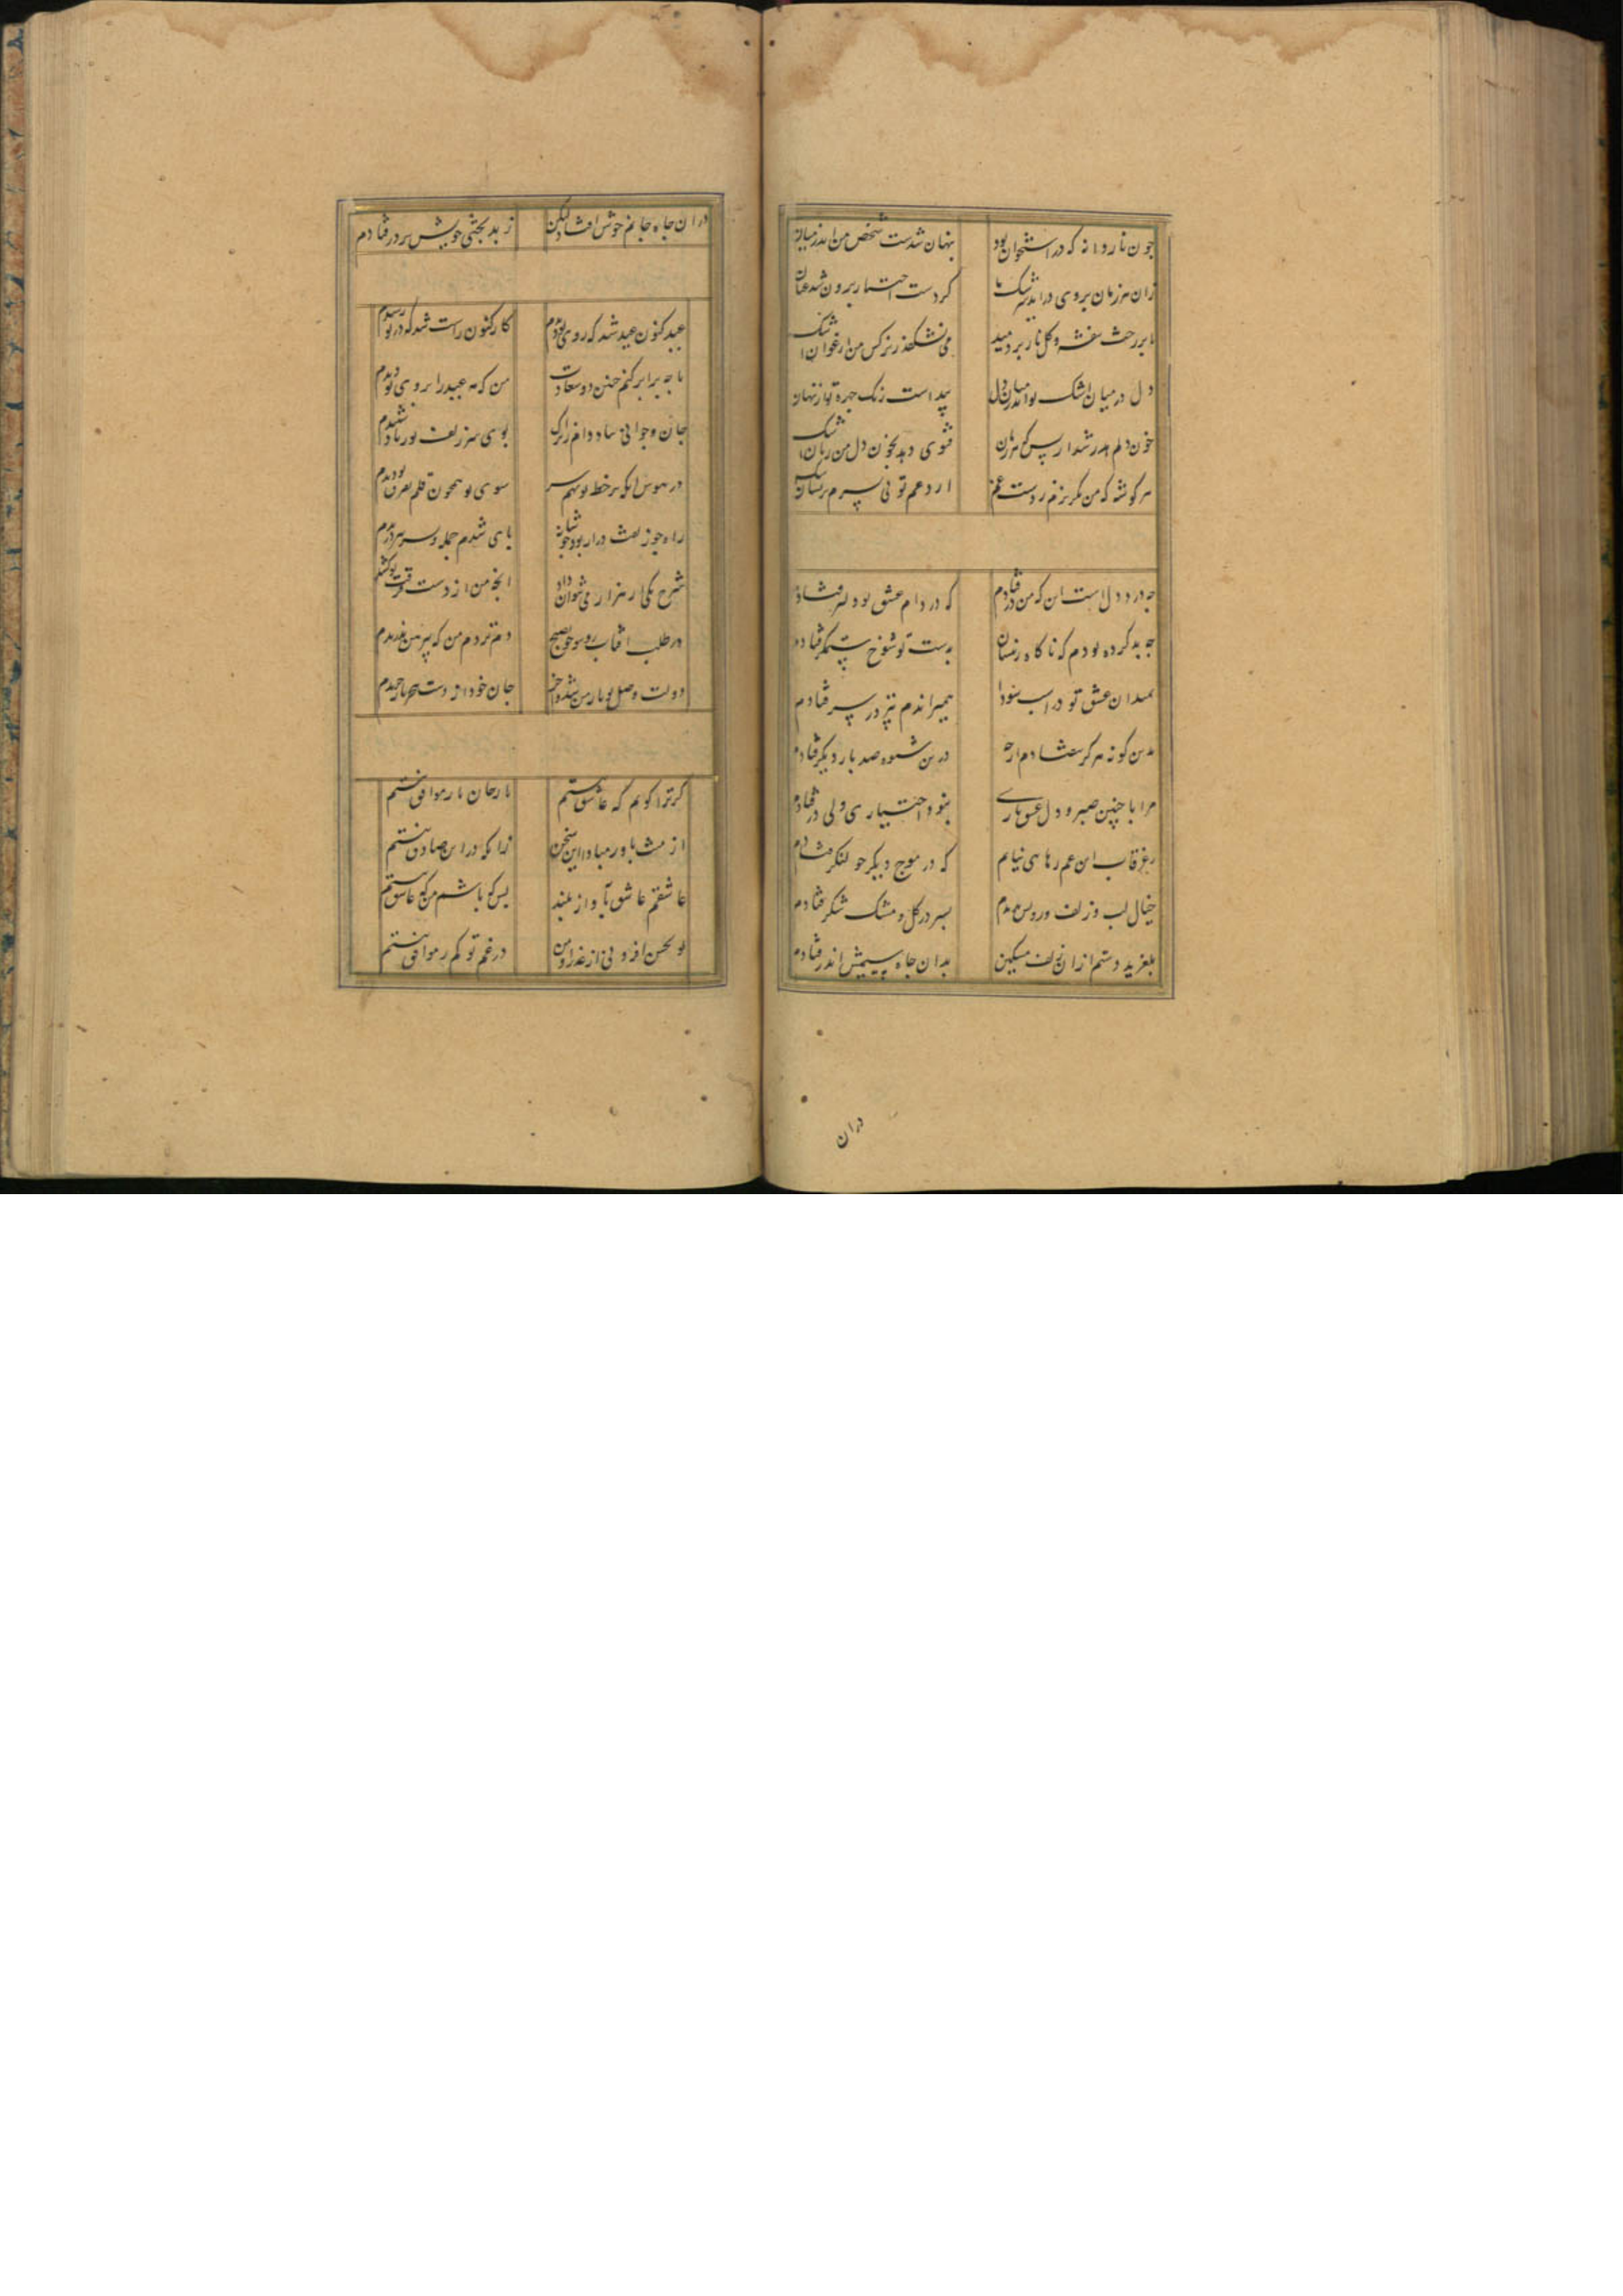 چون ناردانه که در استخوان بود پنهان شدست شخص من اندر میان
زان هر زمان بروی در اندر سرشک ما کز دست اختیار برون شد عنان
تا بر رخت بنفشه و گل نار بردمید می بشکفد ز نرگس من ارغوان اشک
دل در میان اشک تو اندر میان دل پیداست رنگ چهره تو از نهان
خون دلم هدر شد ار پس که هر زمان فتوی دهد بخون دل من زبان اشک
هر گوشه که من بگریزم ز دست غم آرد غم تو پی بسرم
چه درد دل است این که من در فتادم که در دام عشق تو دلبر فتادم
چه بد کرده بودم که ناگاه زینسان بدست تو شوخ ستمگر فتادم
بمیدان عشق تو در اسب سودا همیراندم تیز در سر فتادم
بدین گونه هرگز نیفتادم ارچه درین شیوه صد بار دیگر فتادم
مرا با چنین صبر و دل عشق بازی نبود اختیاری ولی در فتادم
ز غرقاب این غم رهایی نیابم که در موج دیگر چو لنگر فتادم
خیال لب و زلف و رویش بدیدم بسر در گل و مشک و شکر فتادم
بلغزید دستم از آن زلف مشکین بدان چاه سیمینش اندر فتادم
دران
دران چاه جانم خوش افتاد لیکن ز بدبختی خویش بر در فتادم
عید کنون عید شد که روی تو دیدم کار کنون راست شد که در تو رسیدم
با چه برابر کنم چنین دو سعادت من که مه عید را بروی تو دیدم
جان و جوانی بباد دادم زان که بوی سر زلف تو ز باد شنیدم
در هوس آنکه بر خط تو نهم سر سوی تو همچون قلم بفرق دویدم
راه چو زلفت دراز بود چو شانه پای شدم جمله و بسر ببریدم
شرح یکی از هزار می نتوان داد آنچه من از دست فرقت تو کشیدم
در طلب آفتاب روی تو چون صبح دم نزدم من که پیرهن ندریدم
دولت وصل تو یار من شد و آخر جان خود از دست هجر باز خریدم
گر ترا گویم که عاشق نیستم با رجان یار موافق نیستم
از منت باور مبادا این سخن زانکه در این صادق نیستم
عاشقم عاشق بآواز بلند پس که باشم من که عاشق نیستم
تو بحسن افزونی از عذرا و من در غم تو کم ز وامق نیستم